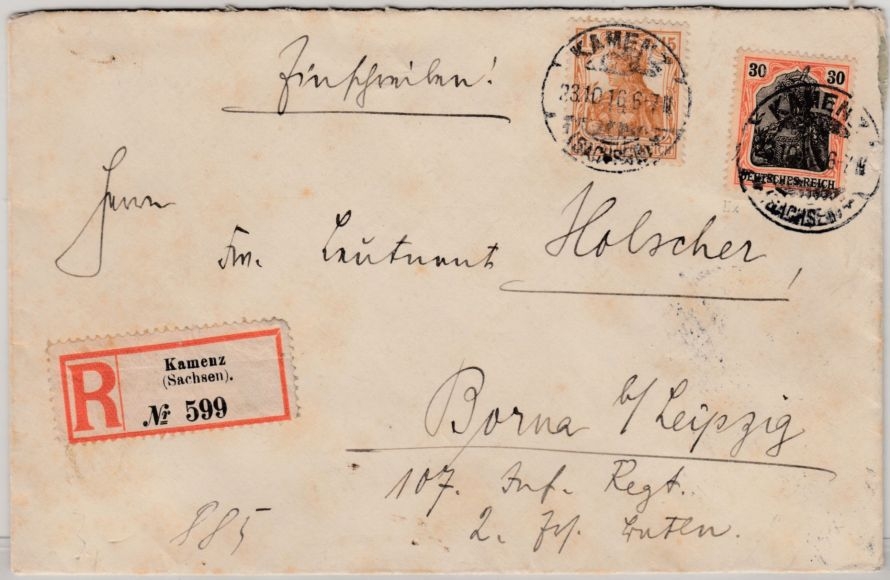 Einschreiben!
KAMENZ
23.10 16.6-7N
(SACHSEN)
15
30 30
DEUTSCHES REICH
KAMENZ
6-7N
(SACHSEN)
Herrn
Leutnant Holscher,
R
Kamenz
(Sachsen).
№ 599
Borna b/Leipzig
107. Inf. Regt.
2.
885